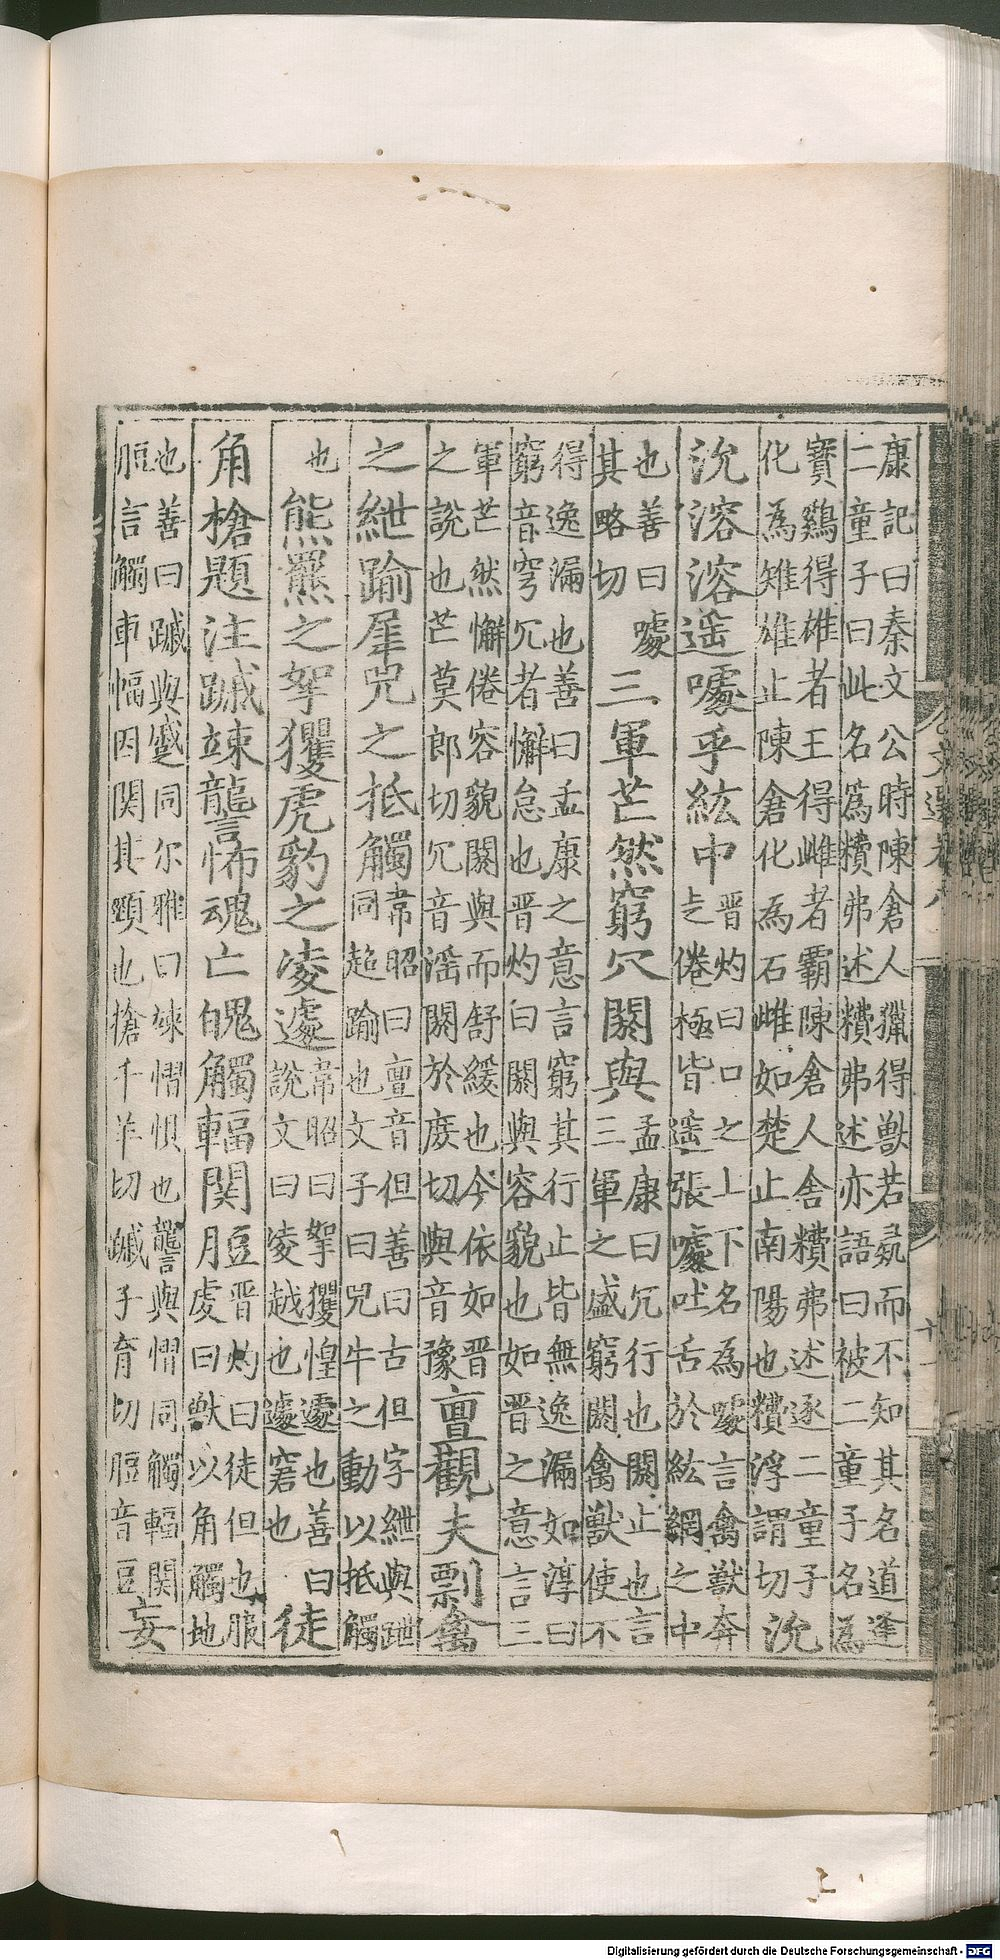 康記曰秦文公時陳倉人獵得獸若彘而不知其名道逢
二童子曰此名爲䊧弗述䊧弗述亦語曰被二童子名爲
寶鷄得雄者王得雌者霸陳倉人舍䊧弗述逐二童子
化爲雉雄止陳倉化爲石雌如楚止南陽也䊧浮謂切沇
沇溶溶遥噱乎紘中
晋灼曰口之上下名爲噱言禽獸奔
走倦極皆遥張噱吐舌於紘網之中
也善曰噱
其略切
三軍芒然窮冗閼與
孟康曰冗行也閼止也言
三軍之盛窮閼禽獸使不
得逸漏也善曰孟康之意言窮其行止皆無逸漏如淳曰
窮音穹冗者懈怠也晋灼曰閼與容貌也如晋之意言三
軍芒然懈倦容貌閼與而舒緩也今依如晋
之說也芒莫郎切冗音滛閼於庶切與音豫
亶觀夫剽禽
之紲踰犀兕之抵觸
韋昭曰亶音但善曰古但字紲與跇
同超踰也文子曰兕牛之動以抵觸
也
熊羆之挐攫虎豹之凌遽
韋昭曰挐攫惶遽也善曰
說文曰凌越也遽窘也
徒
角槍題注䠞竦讋怖魂亡魄觸輻関
晋灼曰徒但也服
䖍曰獸以角觸地
也善曰䠞與蹙同尔雅曰竦慴惧也讋與慴同觸輻関
脰言觸車幅因関其頸也槍千羊切䠞子育切脰音豆
妄
文選卷八